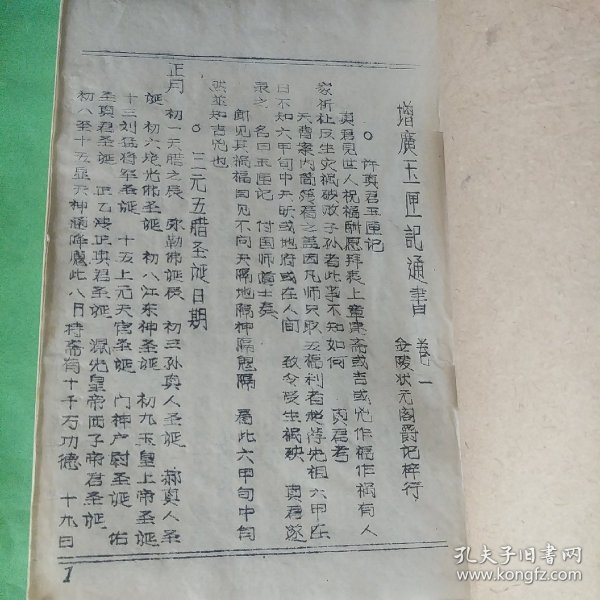 增廣玉匣記通書 卷一
金陵状元阁爵记梓行
○ 许真君玉匣记
真君见世人祝福酬愿拜表上章崇斋或吉或凶作福作祸有人
家祈社反生灾祸破败子孙者此事不知如何 真君考
天曹案内简箓
日不知六甲旬中天昕或地府或在人间 致令受生祸殃 真君遂
录之 名曰玉匣记 付国师道士奏
即见其祸福因见不同天隔地隔神隔鬼隔 看此六甲旬中旬
然並知吉凶也
○ 三元五腊圣诞日期
正月 初一天腊之辰 弥勒佛诞辰 初三孙真人圣诞 郝真人圣
诞 初六烧光佛圣诞 初八江东神圣诞 初九玉皇上帝圣诞
十三刘猛将军圣诞 十五上元天官圣诞 门神户尉圣诞 佑
圣真君圣诞 正乙法正真君圣诞 混元皇帝西子帝君圣诞
初八至十五显天神通降魔此八日持斋有十千万功德 十九日
1
孔夫子旧书网
www.kongfz.com